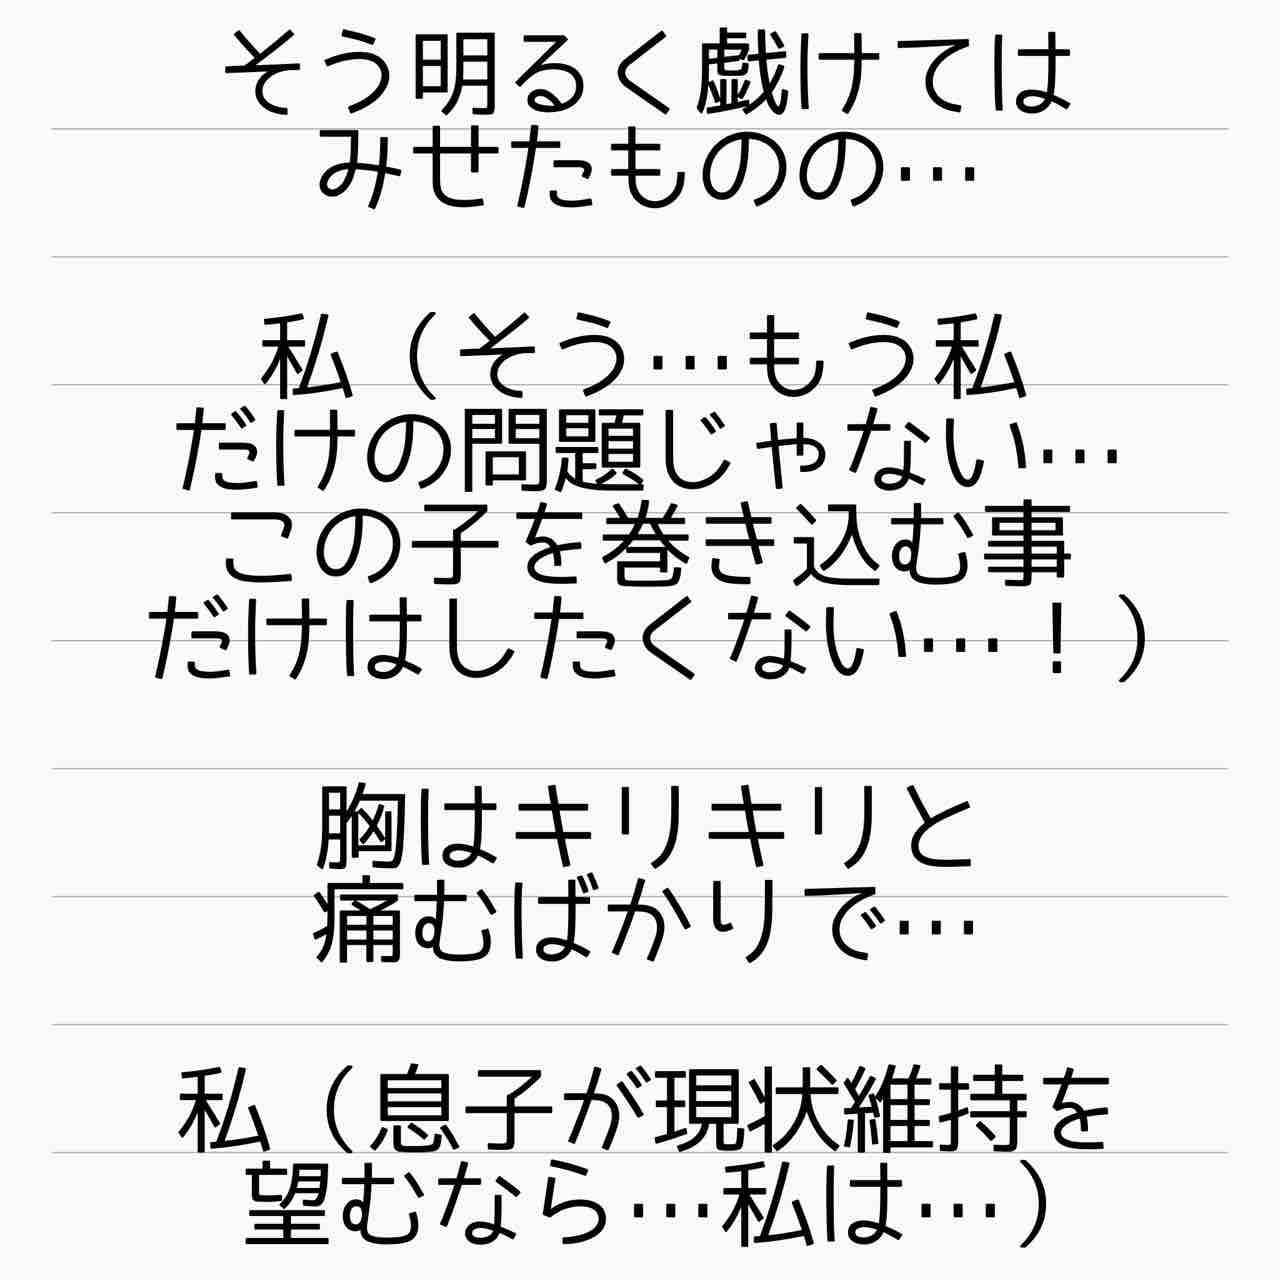 そう明るく戯けては
みせたものの…
私（そう…もう私
だけの問題じゃない…
この子を巻き込む事
だけはしたくない…！）
胸はキリキリと
痛むばかりで…
私（息子が現状維持を
望むなら…私は…）